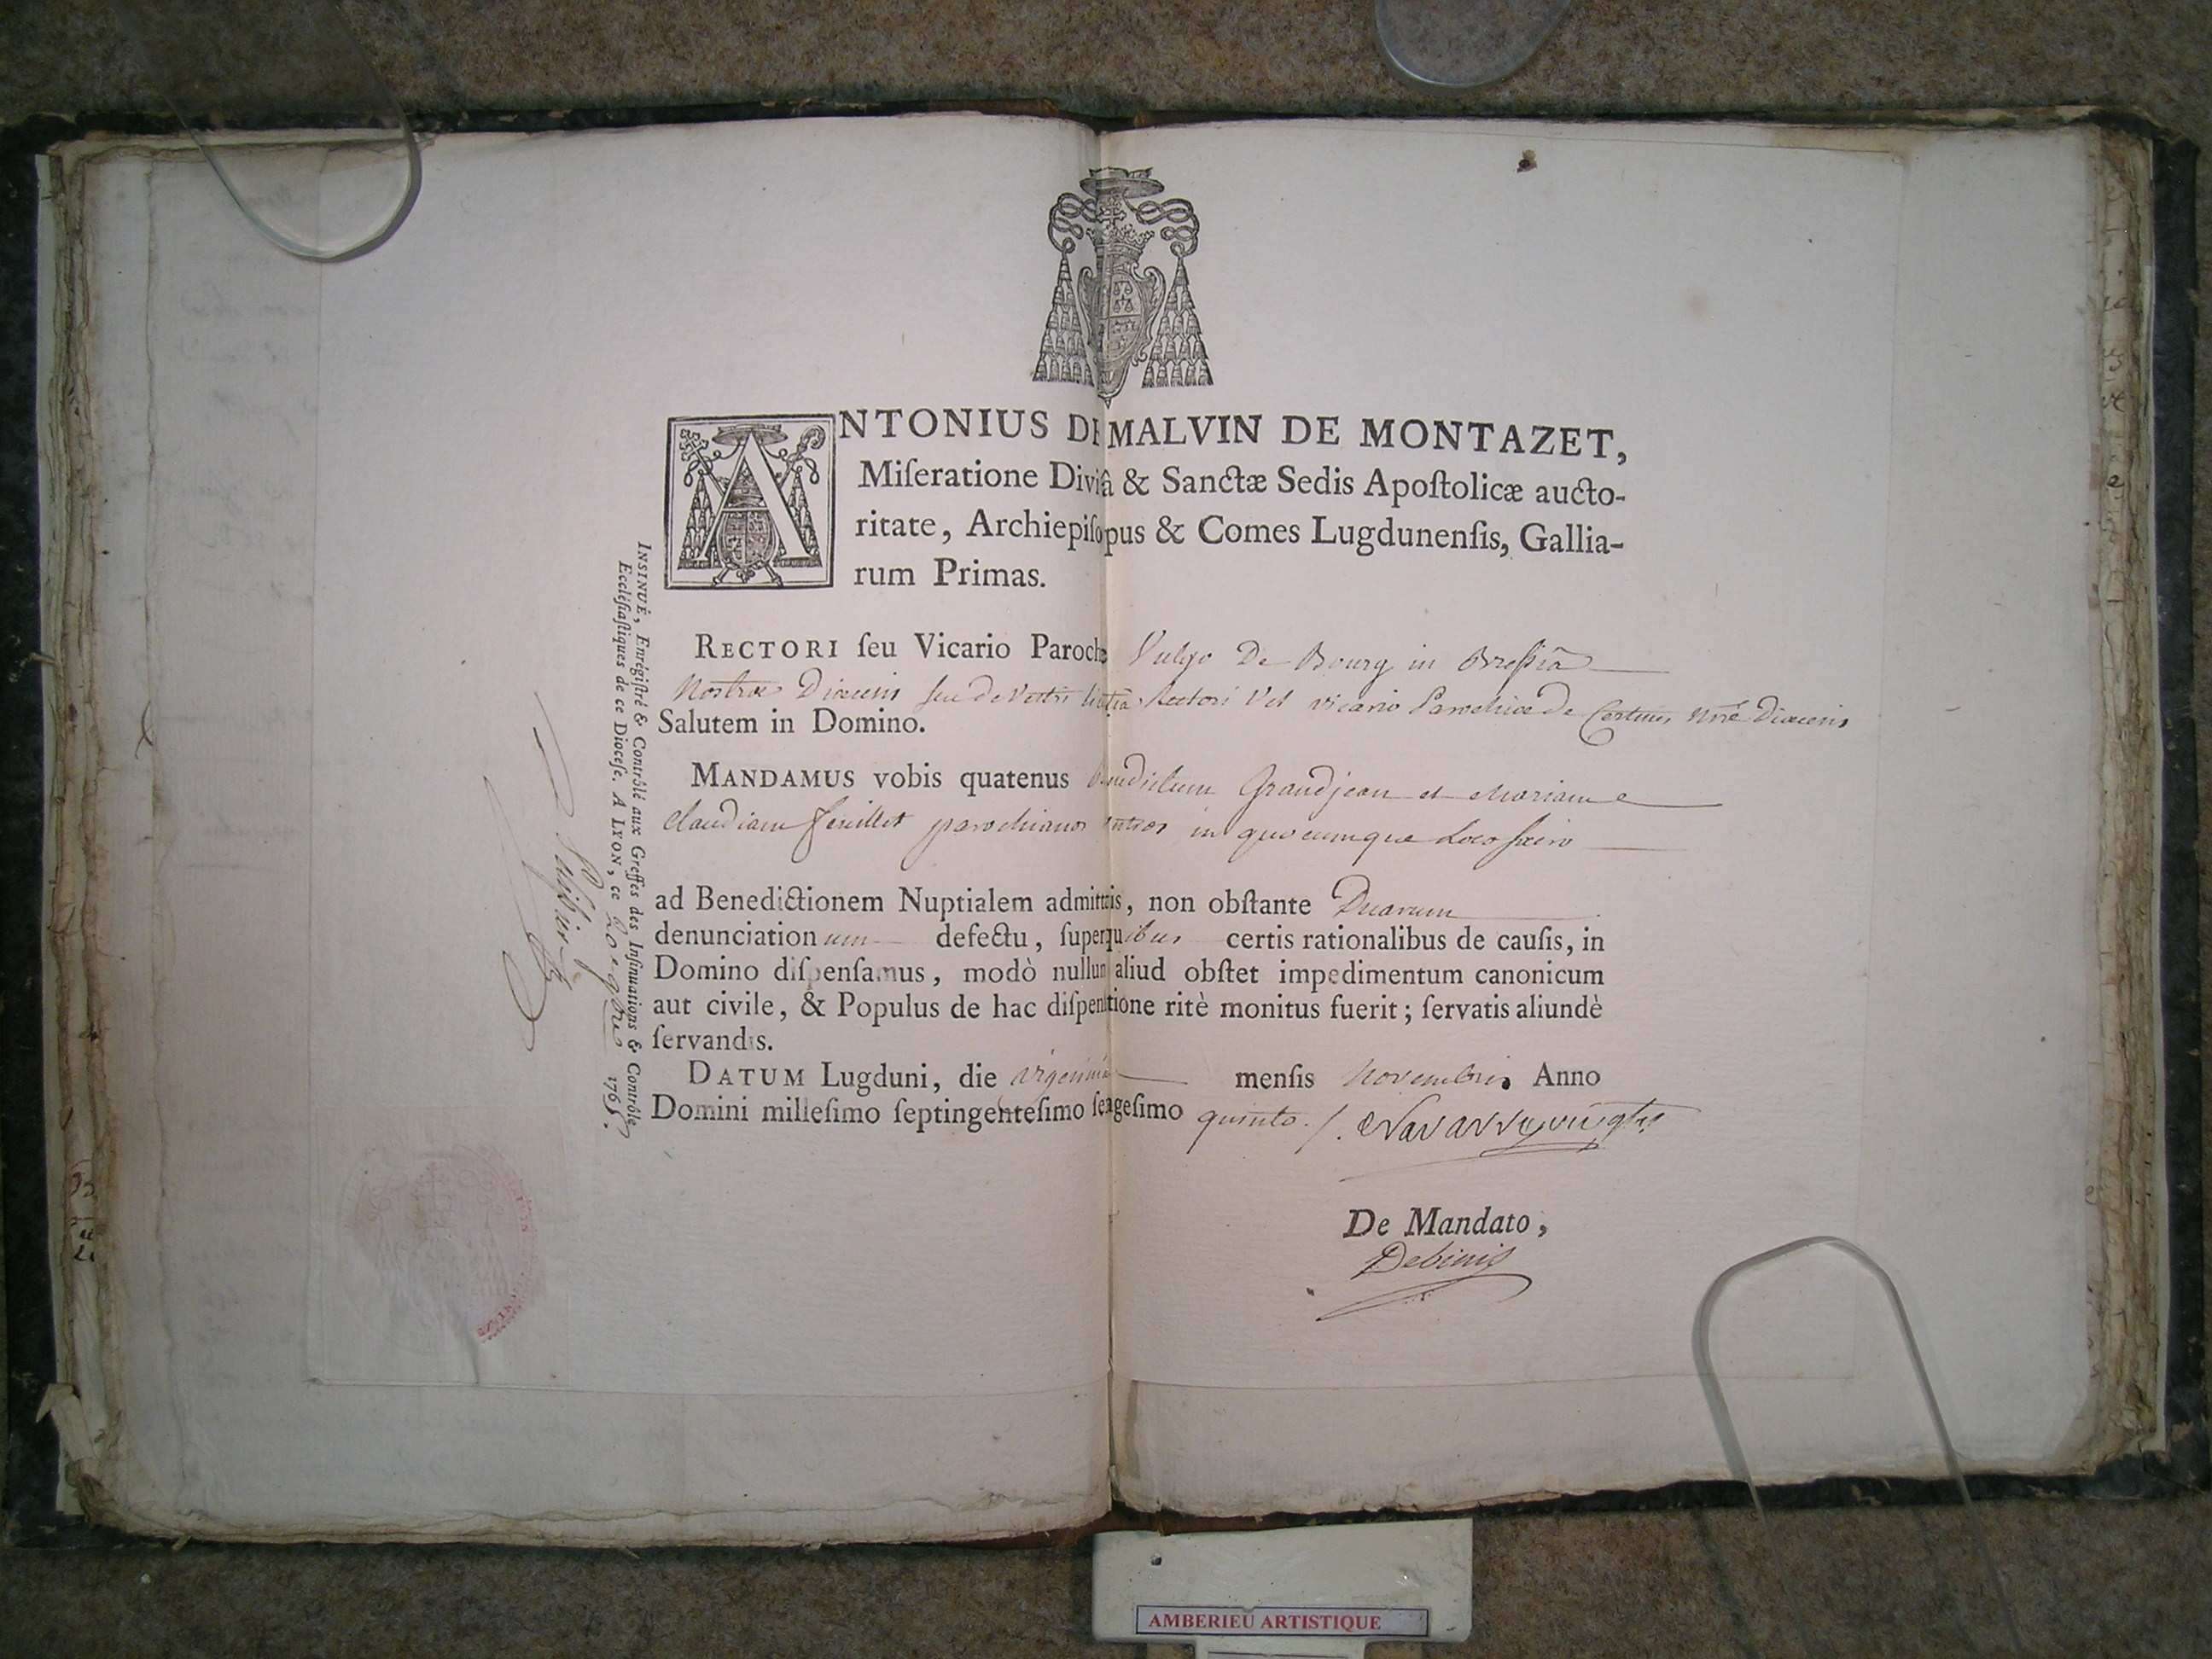 ANTONIUS DE MALVIN DE MONTAZET,
Miſeratione Diviâ & Sanctæ Sedis Apoſtolicæ aucto-
ritate, Archiepiſopus & Comes Lugdunenſis, Gallia-
rum Primas.
RECTORI ſeu Vicario Paroch Vulgo De Bourg in Bressiâ
Nostræ Diœcesis seu de Vestri Rectori Vel vicario Parochiæ De nræ Diœcesis
Salutem in Domino.
MANDAMUS vobis quatenus Benedictum Grandjean et Mariam
Claudiam feuillet parochianos in quocumque Loco sacro
ad Benedictionem Nuptialem admittatis, non obſtante Duarum
denunciationum defectu, ſuper quibus certis rationalibus de cauſis, in
Domino diſpenſamus, modò nullum aliud obſtet impedimentum canonicum
aut civile, & Populus de hac diſpenſatione ritè monitus fuerit; ſervatis aliundè
ſervandis.
DATUM Lugduni, die vigesima menſis Novembris Anno
Domini milleſimo ſeptingenteſimo ſexageſimo quinto. /. Navarre
De Mandato,
Debinis
INSINUÉ, Enrégiſtré & Contrôlé aux Greffes des Inſinuations & Contrôle
Eccléſiaſtiques de ce Dioceſe. A LYON, ce 20 9bre 1765.
AMBERIEU ARTISTIQUE